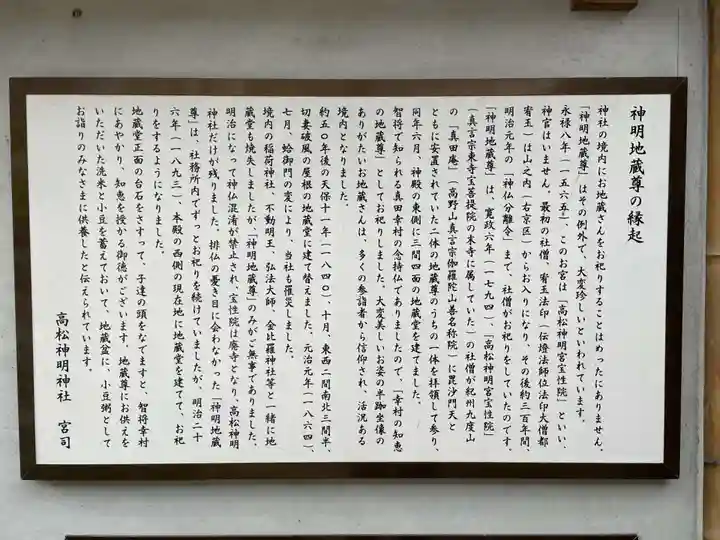 神明地蔵尊の縁起
神社の境内にお地蔵さんをお祀りすることはめったにありません。
「神明地蔵尊」はその例外で、大変珍しいといわれています。
永禄八年（一五六五）、このお宮は「高松神明宮宝性院」といい、
神官はいません。最初の社僧、宥玉法印（伝燈法師位法印大僧都
宥玉）は山之内（右京区）からお入りになり、その後約三百年間、
明治元年の「神仏分離令」まで、社僧がお祀りをしていたのです。
「神明地蔵尊」は、寛政六年（一七九四）、「高松神明宮宝性院」
（真言宗東寺宝菩提院の末寺に属していた）の社僧が紀州九度山
の「真田庵」（高野山真言宗伽羅陀山善名称院）に毘沙門天と
ともに安置されていた二体の地蔵尊のうちの一体を拝領して参り、
同年六月、神殿の東側に三間四面の地蔵堂を建てました。
智将で知られる真田幸村の念持仏でありましたので、「幸村の知恵
の地蔵尊」としてお祀りしました。大変美しいお姿の半跏坐像の
ありがたいお地蔵さんは、多くの参詣者から信仰され、活況ある
境内となりました。
約五〇年後の天保十一年（一八四〇）、十月、東西二間南北三間半、
切妻破風の屋根の地蔵堂に建て替えました。元治元年（一八六四）、
七月、蛤御門の変により、当社も罹災しました。
境内の稲荷神社、不動明王、弘法大師、金比羅神社等と一緒に地
蔵堂も焼失しましたが、「神明地蔵尊」のみがご無事でありました。
明治になって神仏混淆が禁止され、宝性院は廃寺となり、高松神明
神社だけが残りました。排仏の憂き目に会わなかった「神明地蔵
尊」は、社務所内でずっとお祀りを続けていましたが、明治二十
六年（一八九三）、本殿の西側の現在地に地蔵堂を建てて、お祀
りをするようになりました。
地蔵堂正面の台石をさすって、子達の頭をなでますと、智将幸村
にあやかり、知恵を授かる御徳がございます。地蔵尊にお供えを
いただいた洗米と小豆を蓄えておいて、地蔵盆に、小豆粥として
お詣りのみなさまに供養したと伝えられています。
高松神明神社　宮司